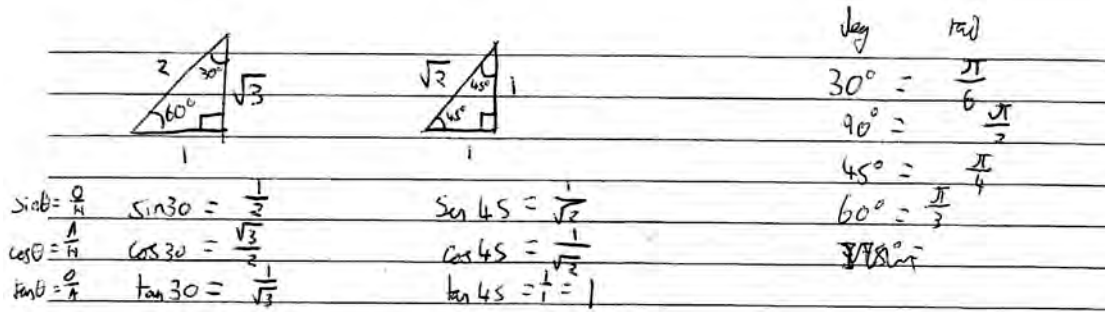 deg rad
2 30° √3 60° 1
√2 45° 1 45° 1
30° = π/6
90° = π/2
45° = π/4
60° = π/3
sinθ = O/H sin30 = 1/2 Sin 45 = 1/√2
cosθ = A/H cos30 = √3/2 cos45 = 1/√2
tanθ = O/A tan30 = 1/√3 tan 45 = 1/1 = 1